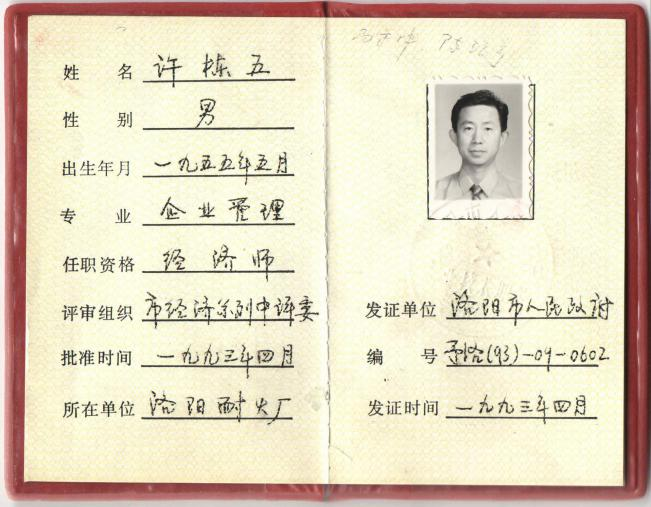 姓名 许栋五
性别 男
出生年月 一九五五年五月
专业 企业管理
任职资格 经济师
评审组织 市经济系列中评委
批准时间 一九九三年四月
所在单位 洛阳耐火厂
发证单位 洛阳市人民政府
编号 予洛(93)-09-0602
发证时间 一九九三年四月